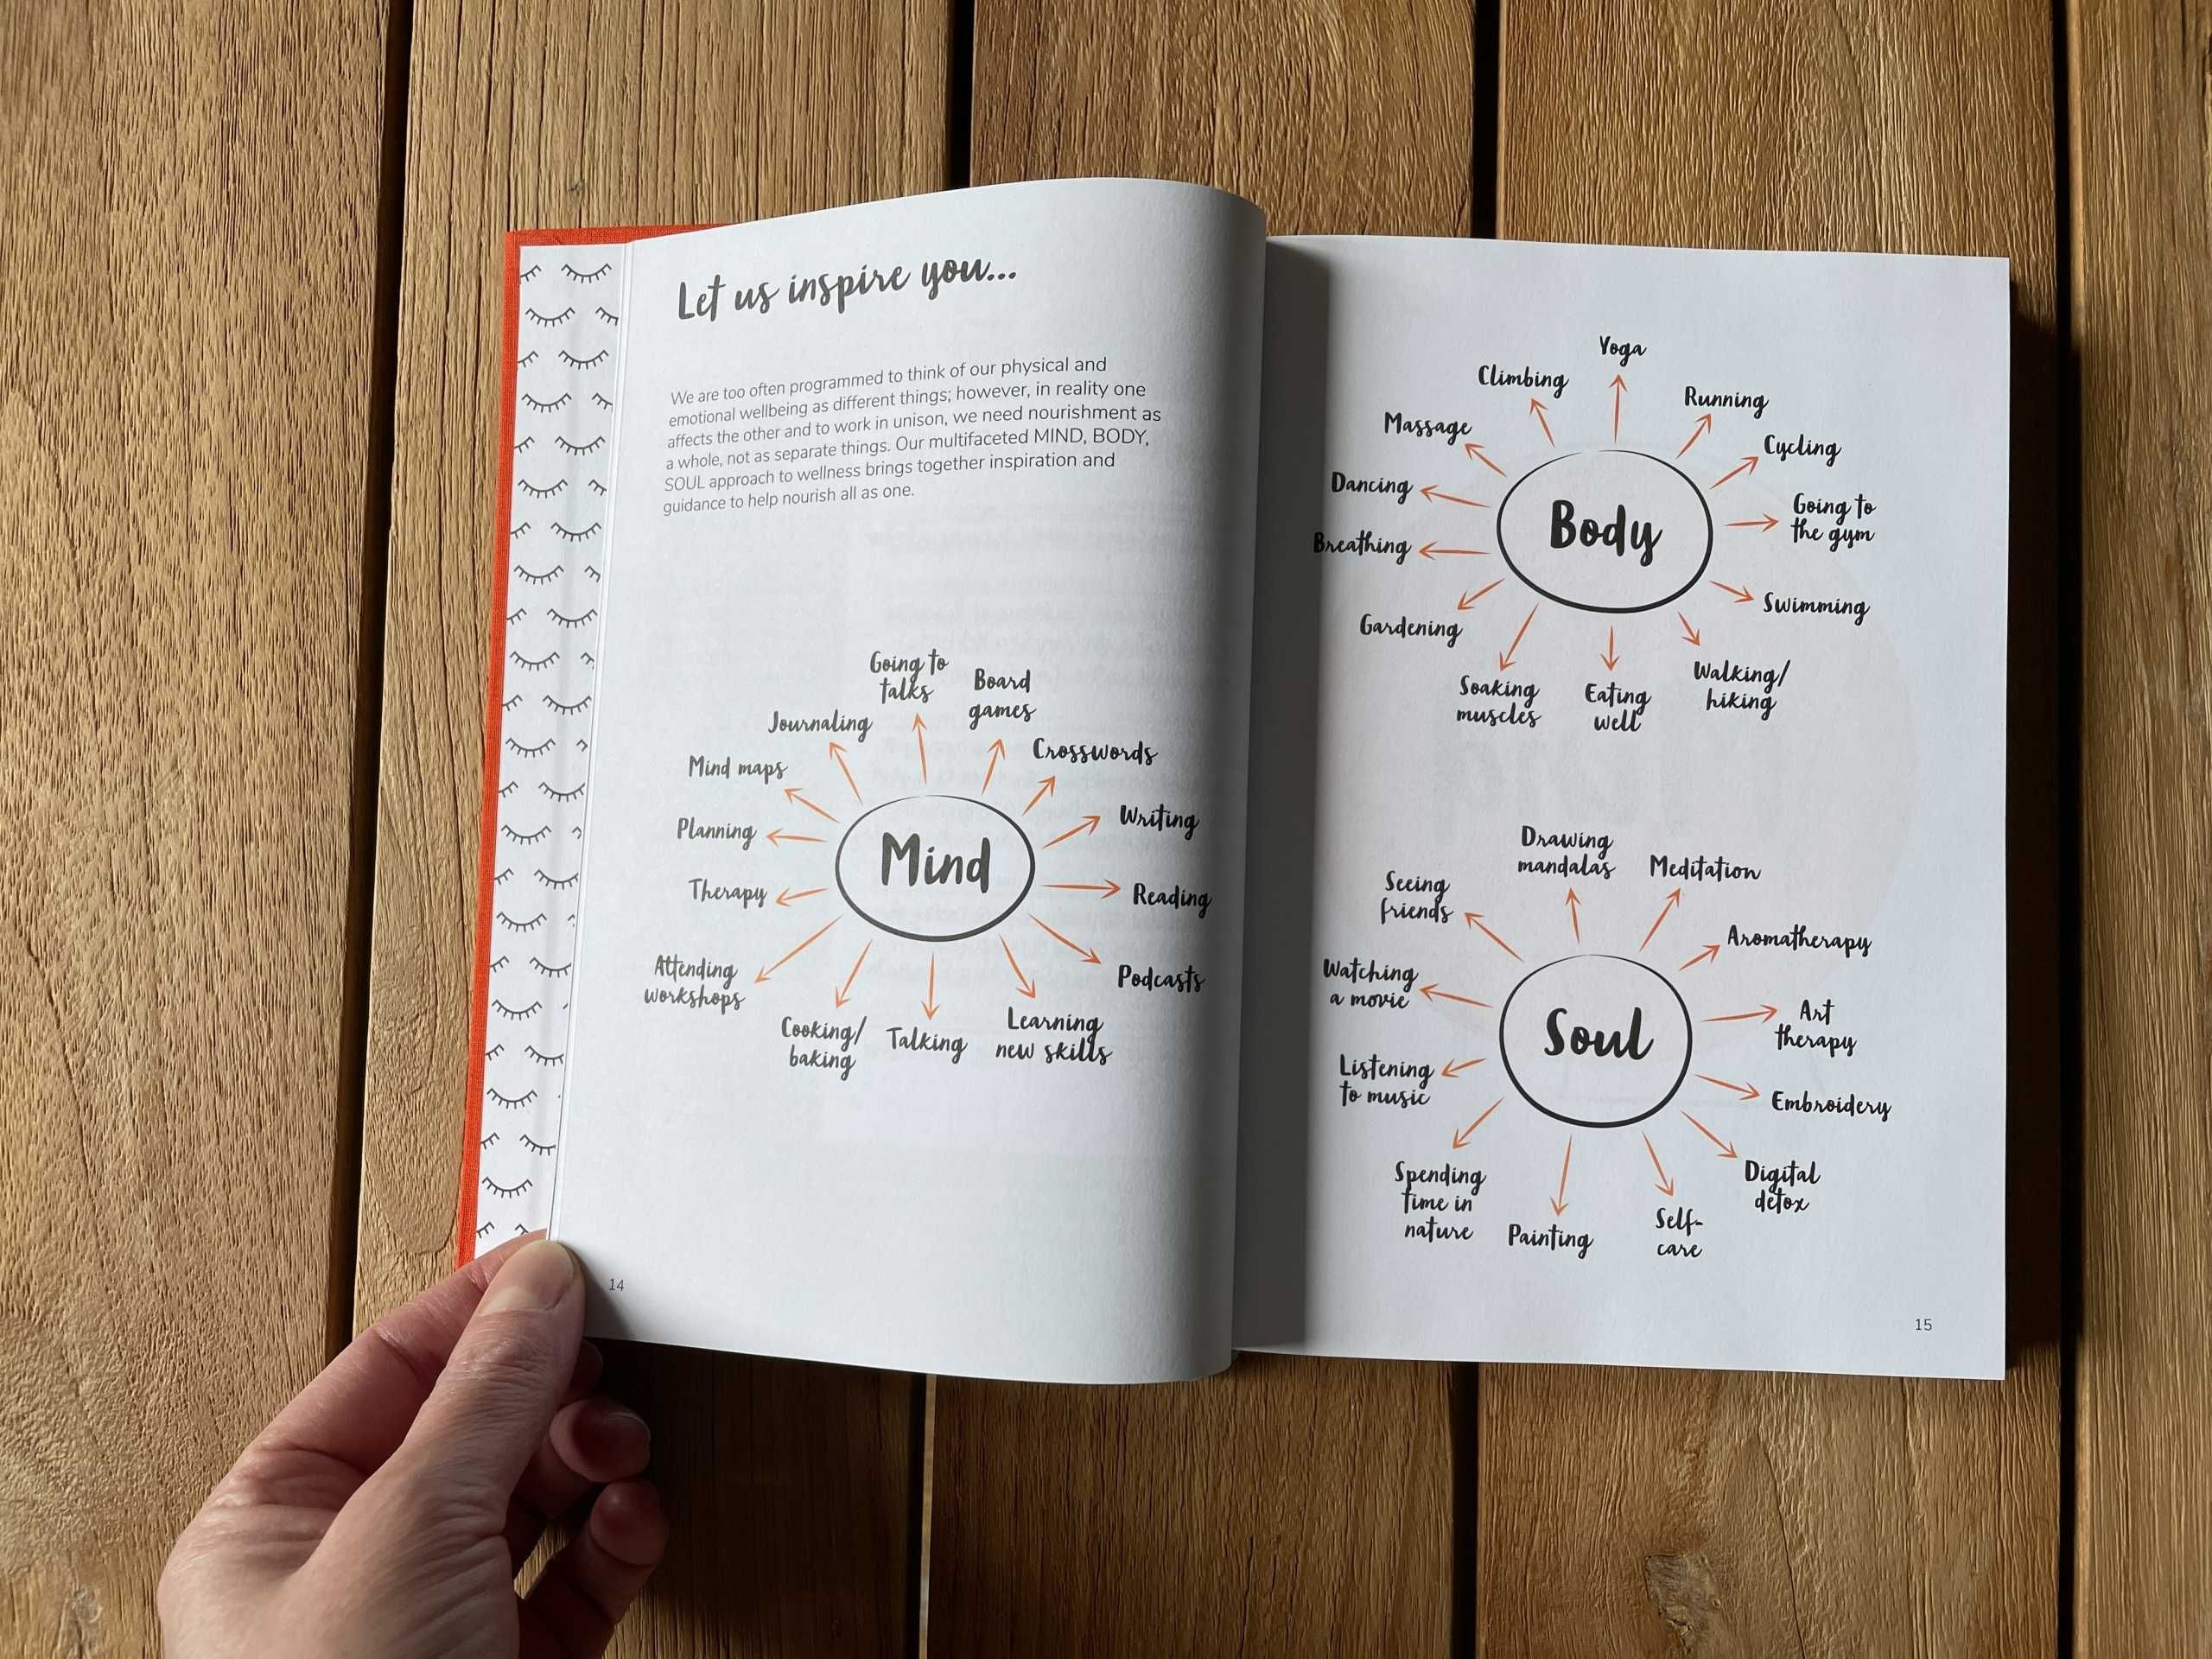 Let us inspire you...
We are too often programmed to think of our physical and
emotional wellbeing as different things; however, in reality one
affects the other and to work in unison, we need nourishment as
a whole, not as separate things. Our multifaceted MIND, BODY,
SOUL approach to wellness brings together inspiration and
guidance to help nourish all as one.
Mind
Going to
talks
Board
games
Crosswords
Writing
Reading
Podcasts
Learning
new skills
Talking
Cooking/
baking
Attending
workshops
Therapy
Planning
Mind maps
Journaling
14
Body
Yoga
Running
Cycling
Going to
the gym
Swimming
Walking/
hiking
Eating
well
Soaking
muscles
Gardening
Breathing
Dancing
Massage
Climbing
Soul
Drawing
mandalas
Meditation
Aromatherapy
Art
therapy
Embroidery
Digital
detox
Self-
care
Painting
Spending
time in
nature
Listening
to music
Watching
a movie
Seeing
friends
15